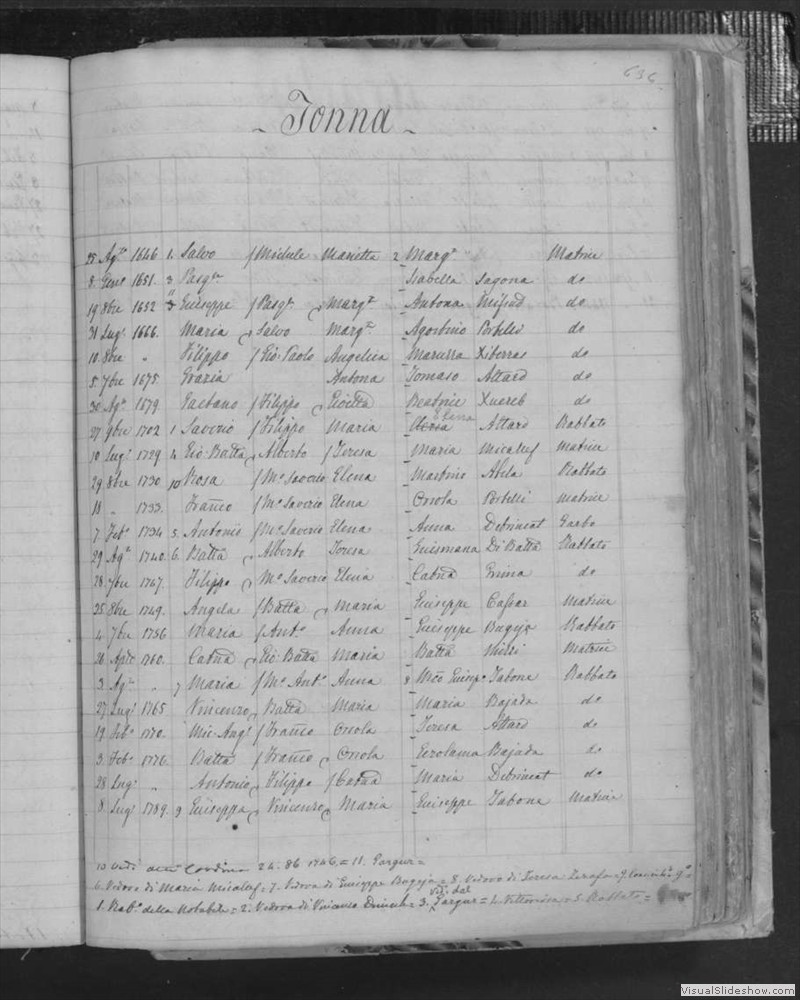 636
Tonna
25 Ag.to 1646 1. Salvo f Michele Marietta 2 Marg.a Matrice
8 Gen.o 1651. 3 Pasq.e Isabella Sagona do
19 8bre 1652 3 Giuseppe f Pasq.e e Marg.a Antona Mifsud do
31 Lug.o 1666. Maria e Salvo Marg.a Agostino Portelli do
10 8bre " Filippo f Gio. Paolo Angelica Maruzza Xiberras do
5 7bre 1675. Grazia Antona Tomaso Attard do
30 Ag.o 1679. Gaetano f Filippo e Gioetta Beatrice Xuereb do
27 9bre 1702 1 Saverio f Filippo Maria Elena Attard Rabbato
10 Lug.o 1729 4 Gio Batta e Alberto f Teresa Maria Micalef Matrice
29 8bre 1730 10 Rosa f M.o Saverio Elena Martino Abela Rabbato
18 " 1733. Franco f M.o Saverio Elena Orsola Portelli Matrice
7 Feb.o 1734 5. Antonio f M.o Saverio Elena Anna Debrincat Garbo
29 Ag.o 1740. 6. Batta e Alberto Teresa Di Batta Rabbato
28 7bre 1767. Filippo e M.o Saverio Elena Catna do
25 8bre 1749. Angela f Batta e Maria Giuseppe Cassar Matrice
4 7bre 1756 Maria f Ant.o Anna Giuseppe Bugeja Rabbato
26 Aple 1760. Catna e Gio Batta Maria Batta Matrice
3 Ag.o " 7 Maria f M.o Ant.o Anna 8 Giusep.e Tabone Rabbato
27 Lug.o 1765 Vincenzo e Batta Maria Maria Bajada do
19 Feb.o 1770. Mic. Ang.o f Franco Orsola Teresa Attard do
3 Feb.o 1776. Batta f Franco e Orsola Gerolama Bajada do
28 Lug.o " Antonio e Filippo f Catna Maria Debrincat do
8 Lug.o 1789. 9 Giuseppa e Vincenzo e Maria Giuseppe Tabone Matrice
10 Vedi 24. 86 1746. = 11. Gargur =
6. Vedova di Maria Micalef = 7. Vedova di Giuseppe Bugeja = 8. Vedovo di Teresa Zerafa = 9.
1. Rab.o della Notabile = 2. Vedova di Vincenzo = 3. Vedi dal Gargur = 4. Vittoriosa = 5. Rabbato =
VisualSlideshow.com